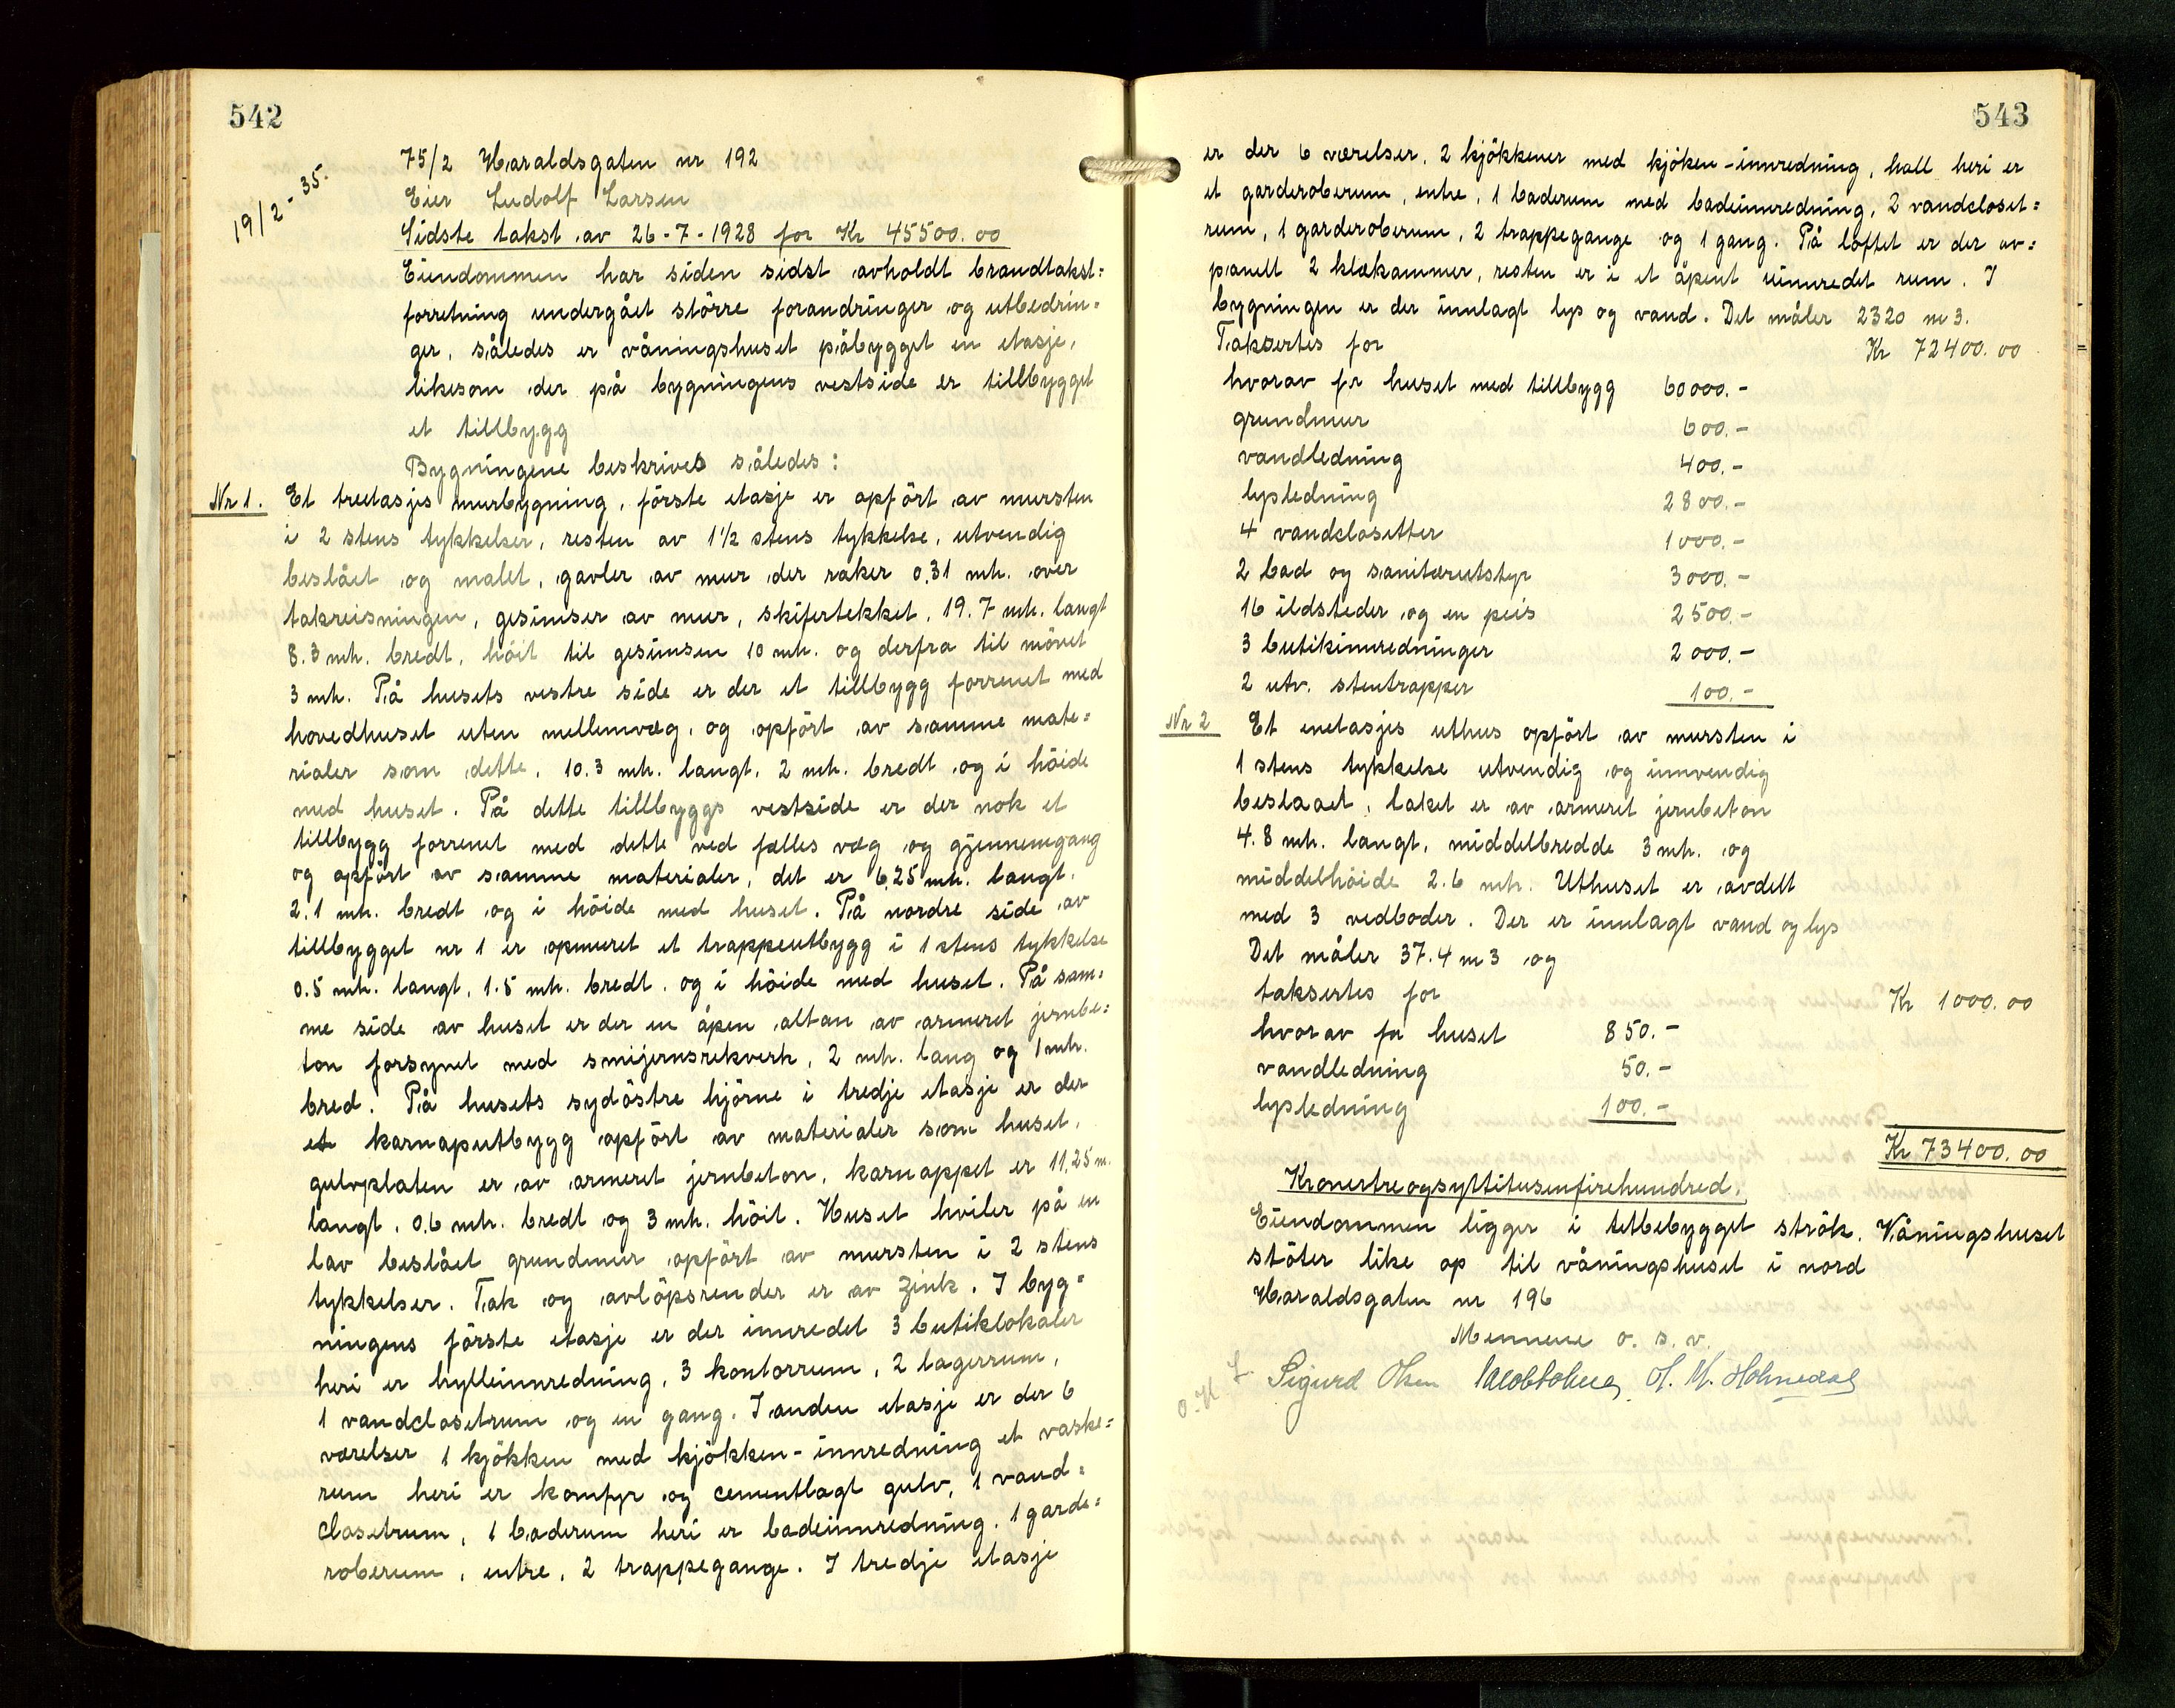 542
19/2-35.
75/2 Haraldsgaten nr 192
Eier Ludolf Larsen
Sidste takst av 26-7-1928 for Kr 45500.00
Eiendommen har siden sidst avholdt brandtakst=
forretning undergået större forandringer og utbedrin=
ger, således er våningshuset påbygget en etasje,
likesom der på bygningens vestside er tillbygget
et tillbygg
Bygningene beskrives således:
Nr 1. Et treetasjes murbygning, förste etasje er opfört av mursten
i 2 stens tykkelser, resten av 1½ stens tykkelse, utvendig
beslået og malet, gavler av mur der raker 0.31 mtr. over
takreisningen, gesimser av mur, skifertekket, 19.7 mtr. langt
8.3 mtr. bredt, höit til gesimsen 10 mtr. og derfra til mönet
3 mtr. På husets vestre side er der et tillbygg forrenet med
hovedhuset uten mellemvæg, og opfört av samme mate=
rialer som dette, 10.3 mtr. langt, 2 mtr. bredt og i höide
med huset. På dette tillbyggs vestside er der nok et
tillbygg forrenet med dette ved fælles væg og gjennemgang
og opfört av samme materialer, det er 6,25 mtr. langt,
2.1 mtr. bredt og i höide med huset. På nordre side av
tillbygget nr 1 er opmuret et trappeutbygg i 1 stens tykkelse
0.5 mtr. langt, 1.5 mtr. bredt, og i höide med huset. På sam=
me side av huset er der en åpen altan av armeret jernbe=
ton forsynet med smijernsrekverk, 2 mtr. lang og 1 mtr.
bred. På husets sydöstre hjörne i tredje etasje er der
et karnaputbygg opfört av materialer som huset,
gulvplaten er av armeret jernbeton, karnappet er 11,25 m.
langt, 0,6 mtr. bredt og 3 mtr. höit. Huset hviler på en
lav beslået grundmur opfört av mursten i 2 stens
tykkelser. Tak og avlöpsrender er av zink. I byg=
ningens förste etasje er der innredet 3 butiklokaler
heri er hylleinnredning, 3 kontorrum, 2 lagerrum,
1 vandclosetrum og en gang. I anden etasje er der 6
værelser 1 kjökken med kjökken-innredning et vaske=
rum heri er komfyr og cementlagt gulv, 1 vand=
closetrum, 1 baderum heri er badeinnredning, 1 garde=
roberum, entre, 2 trappegange. I tredje etasje
543
er der 6 værelser, 2 kjökkener med kjöken-innredning, hall heri er
et garderoberum, entre, 1 baderum med badeinnredning, 2 vandcloset=
rum, 1 garderoberum, 2 trappegange og 1 gang. På loftet er der av=
panelt 2 klækammer, resten er i et åpent uinnredet rum. I
bygningen er der innlagt lys og vand. Det måler 2320 m3.
Taksertes for Kr 72400.00
hvorav for huset med tillbygg 60000.-
grundmur 600.-
vandledning 400.-
lysledning 2800.-
4 vandclosetter 1000.-
2 bad og sanitærutstyr 3000.-
16 ildsteder og en peis 2500.-
3 butikinnredninger 2000.-
2 utv. stentrapper 100.-
Nr 2 Et enetasjes uthus opfört av mursten i
1 stens tykkelse utvendig og innvendig
beslaaet, taket er av armeret jernbeton
4.8 mtr. langt, middelbredde 3 mtr. og
middelhöide 2.6 mtr. Uthuset er avdelt
med 3 vedboder. Der er innlagt vand og lys
Det måler 37.4 m3 og
taksertes for Kr 1000.00
hvorav for huset 850.-
vandledning 50.-
lysledning 100.-
Kr 73400.00
Kronertreogsyttitusenfirehundred.
Eiendommen ligger i tetbebygget strök. Våningshuset
stöter like op til våningshuset i nord
Haraldsgaten nr 196
Mennene o. s. v.
Sigurd Olsen H. M. Holmedal